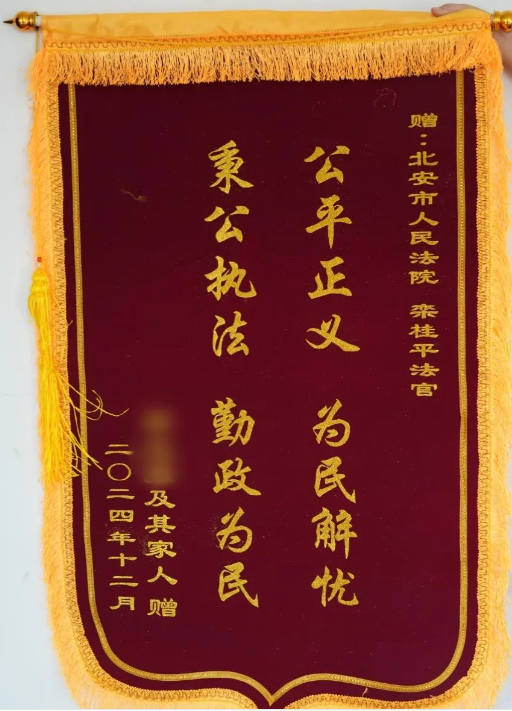 赠：北安市人民法院 栾桂平法官
公平正义 为民解忧
秉公执法 勤政为民
及其家人 赠
二〇二四年十二月